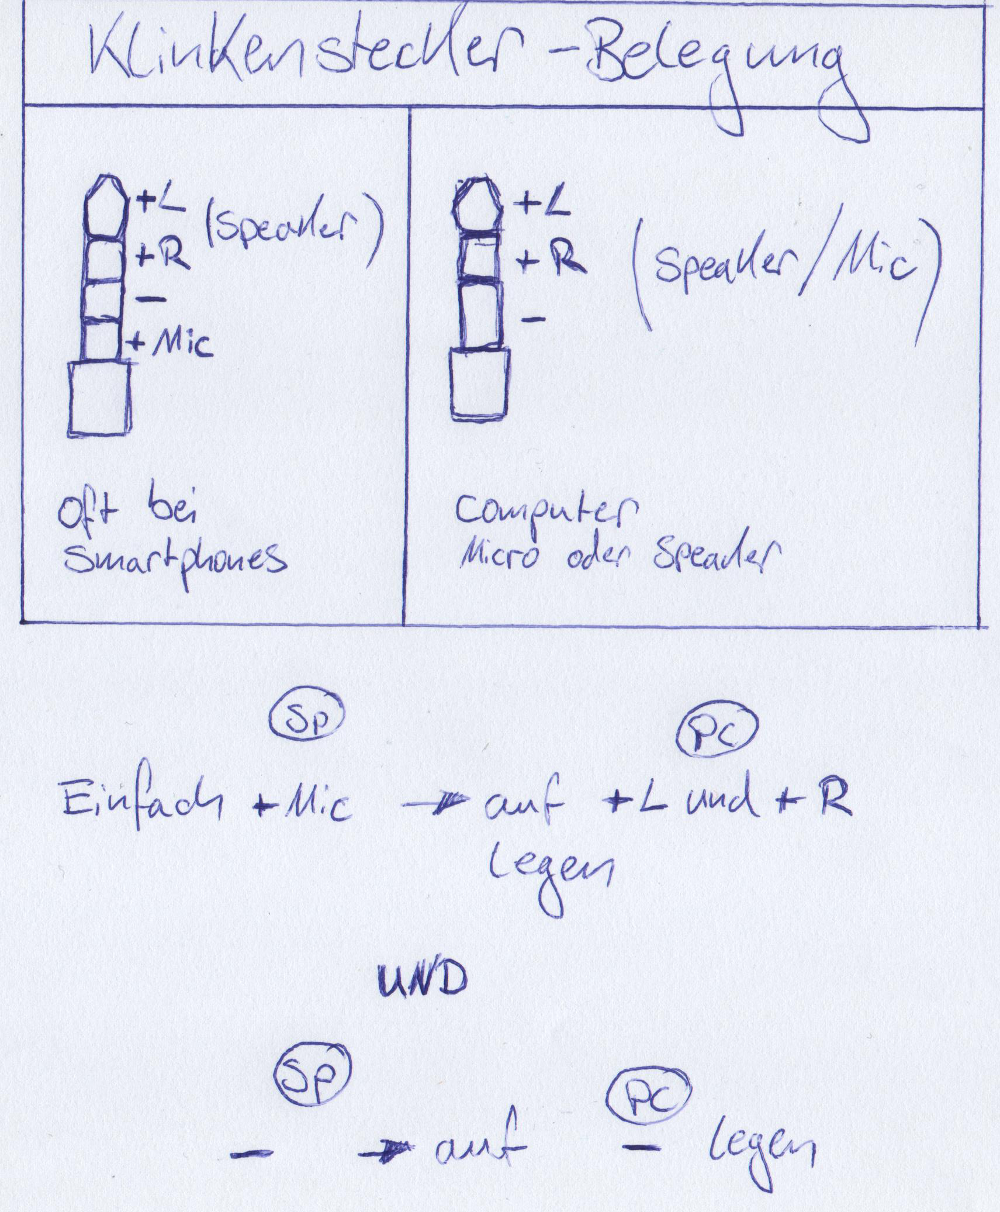 Klinkenstecker - Belegung
+L
+R (Speaker)
-
+Mic
oft bei
Smartphones
+L
+R (Speaker/Mic)
-
Computer
Micro oder Speaker
Sp PC
Einfach +Mic → auf +L und +R
legen
UND
Sp PC
- → auf - legen